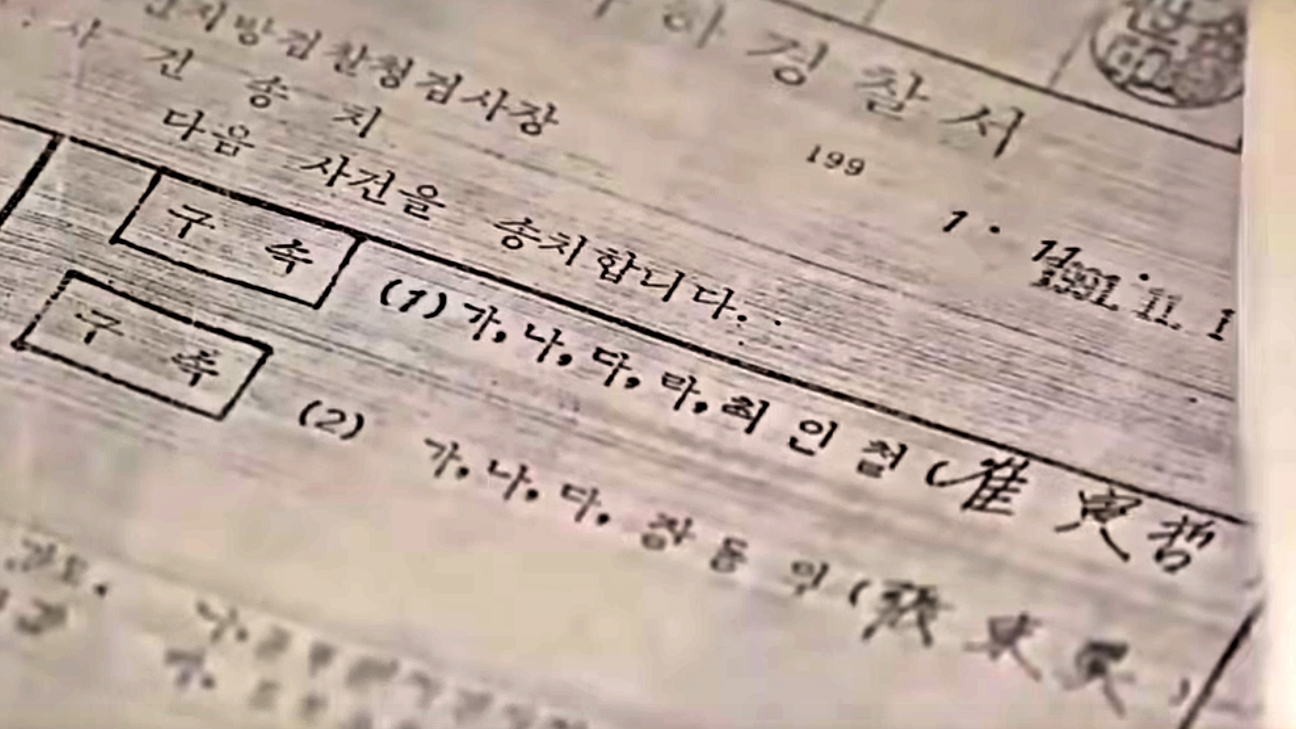 하경찰서
지방검찰청검사장
199 1. 11.
1991. 11. 1
사건송치
다음 사건을 송치합니다.
구 속 (1) 가, 나, 다, 라, 최 인 철 (崔 寅 哲
구 속 (2) 가, 나, 다, 장 동 익 (張 東 翼)